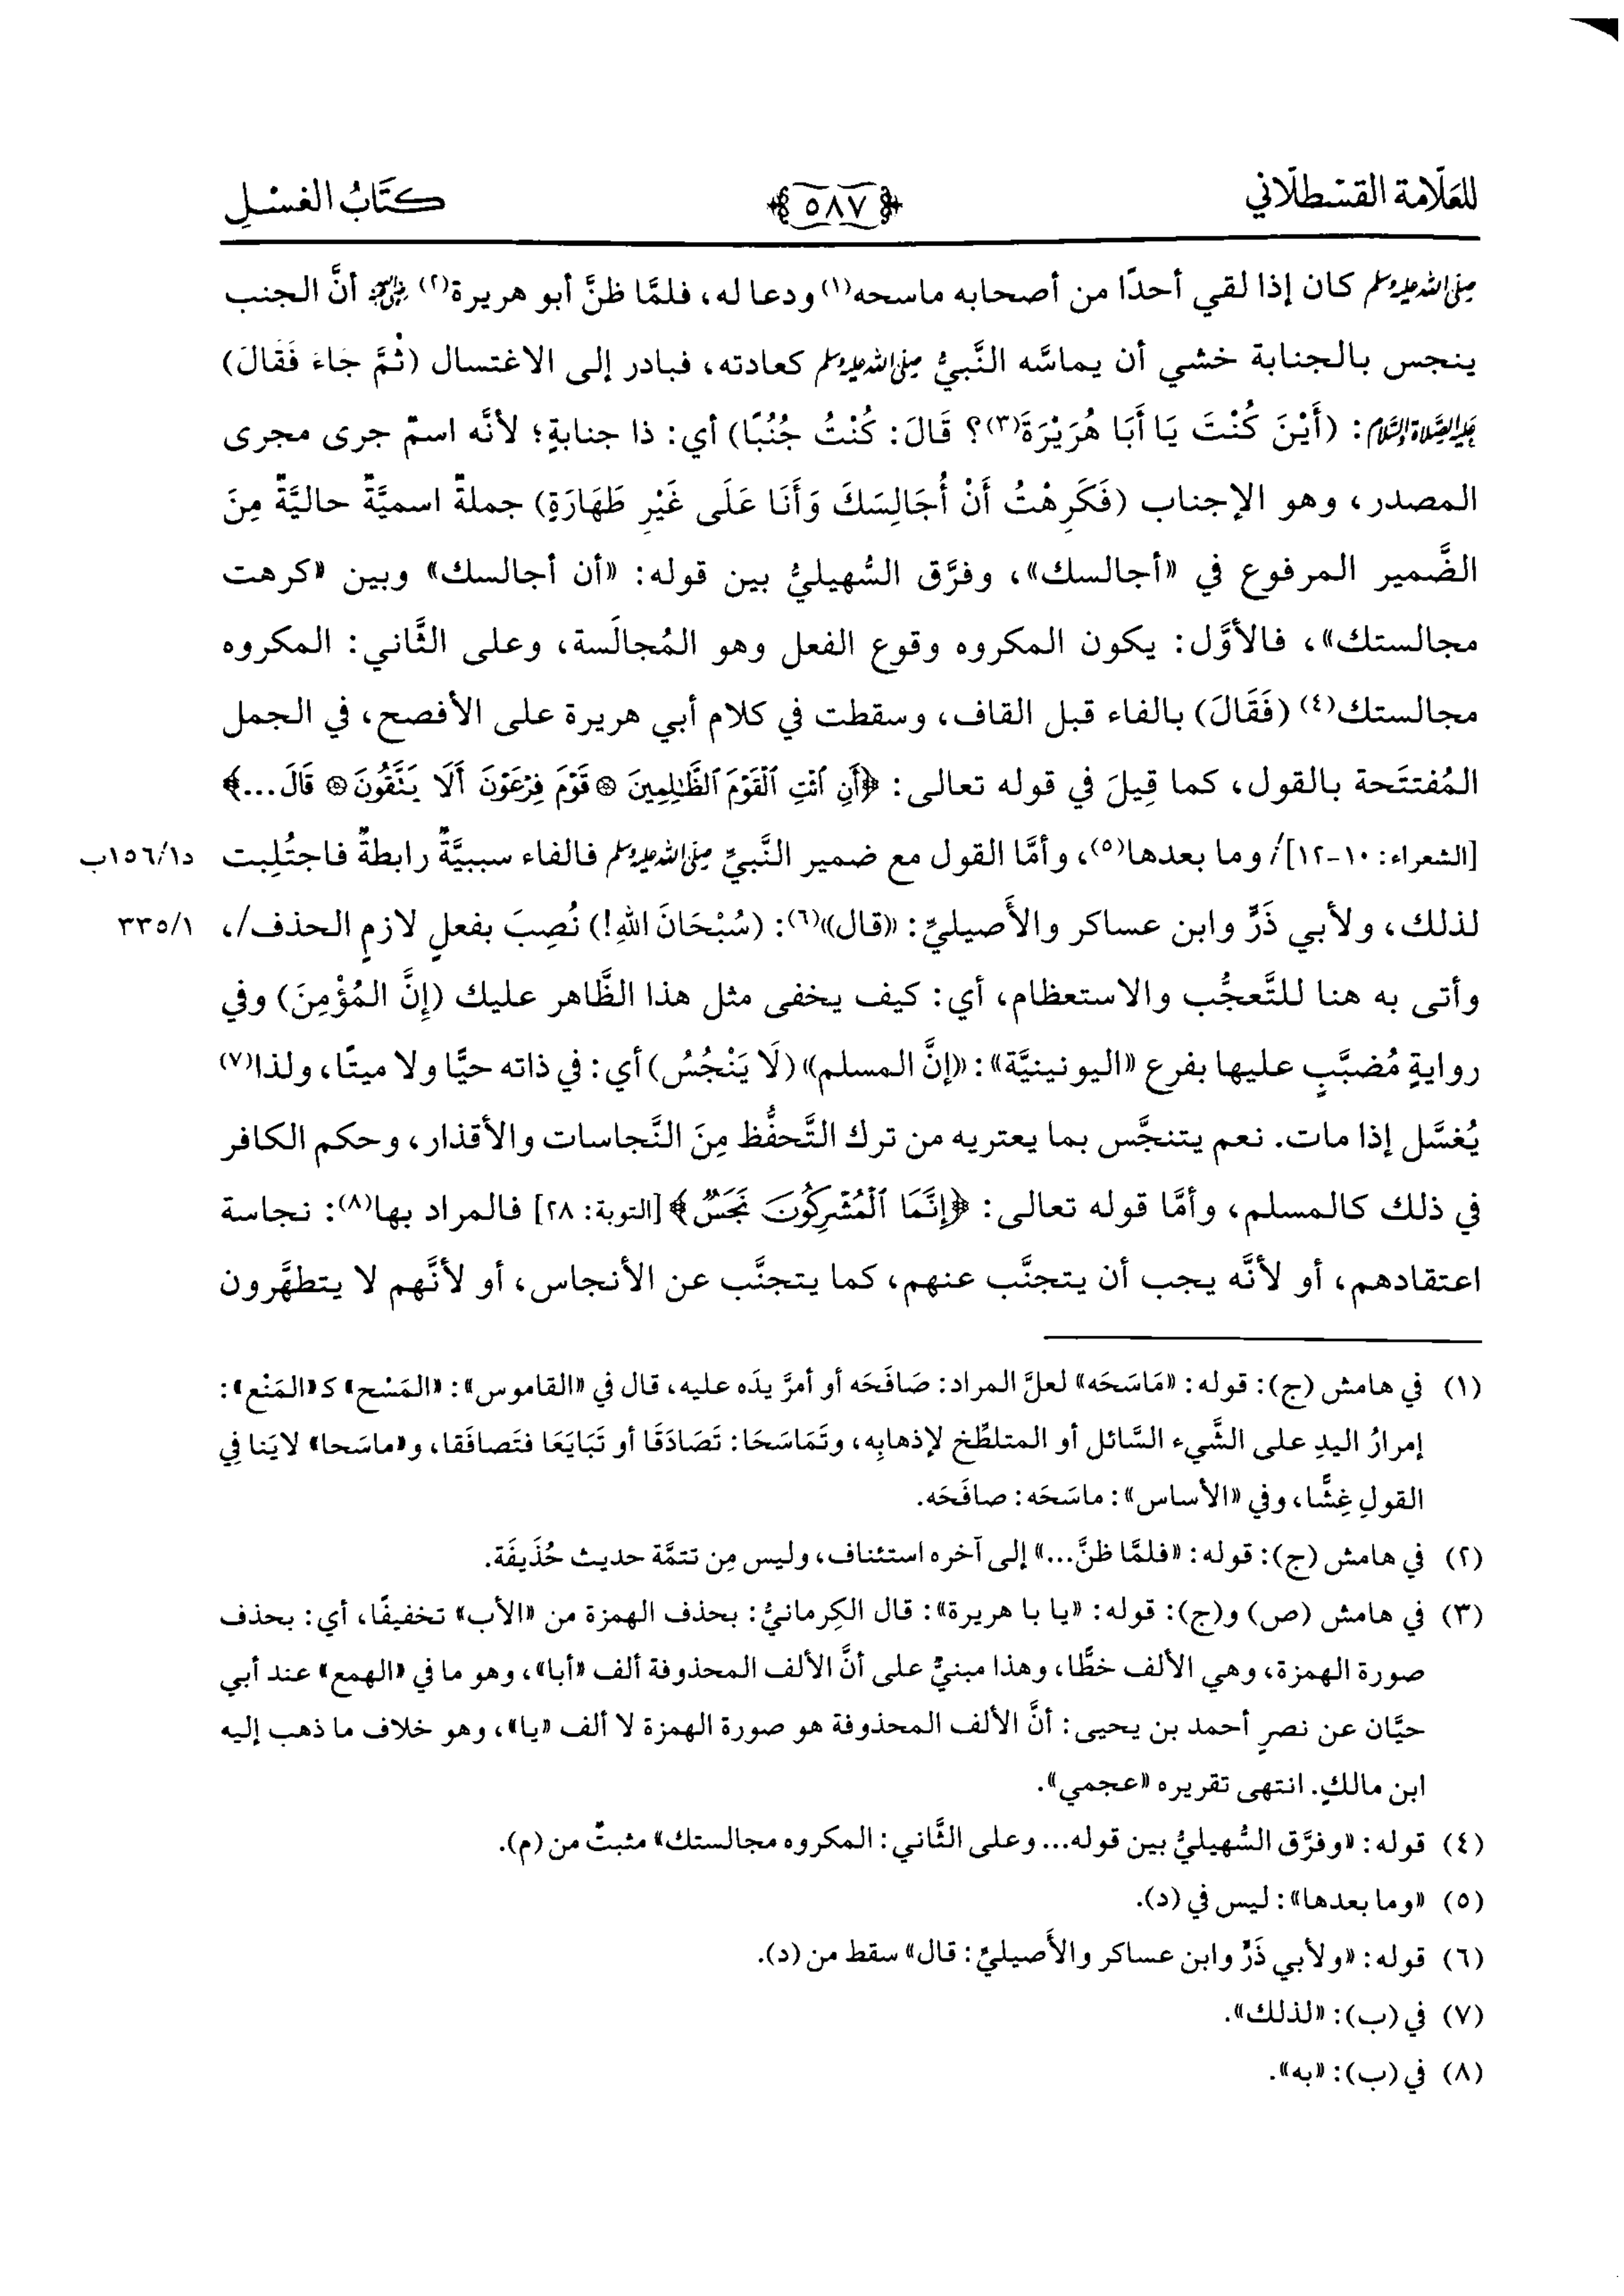 للعَلّامة القسْطلّاني
﴿ ٥٨٧ ﴾
كتَابُ الغسْلِ
صلى الله عليه وسلم كان إذا لقي أحدًا من أصحابه ماسحه(١) ودعا له، فلمَّا ظنَّ أبو هريرة(٢) رضي الله عنه أنَّ الجنب
ينجس بالجنابة خشي أن يماسَّه النَّبيُّ صلى الله عليه وسلم كعادته، فبادر إلى الاغتسال (ثُمَّ جَاءَ فَقَالَ)
عليه الصلاة والسلام: (أَيْنَ كُنْتَ يَا أَبَا هُرَيْرَةَ(٣)؟ قَالَ: كُنْتُ جُنُبًا) أي: ذا جنابةٍ؛ لأنَّه اسمٌ جرى مجرى
المصدر، وهو الإجناب (فَكَرِهْتُ أَنْ أُجَالِسَكَ وَأَنَا عَلَى غَيْرِ طَهَارَةٍ) جملةٌ اسميَّةٌ حاليَّةٌ مِنَ
الضَّمير المرفوع في «أجالسك»، وفرَّق السُّهيليُّ بين قوله: «أن أجالسك» وبين «كرهت
مجالستك»، فالأوَّل: يكون المكروه وقوع الفعل وهو المُجالَسة، وعلى الثَّاني: المكروه
مجالستك(٤) (فَقَالَ) بالفاء قبل القاف، وسقطت في كلام أبي هريرة على الأفصح، في الجمل
المُفتتَحة بالقول، كما قِيلَ في قوله تعالى: ﴿أَنِ ٱئْتِ ٱلْقَوْمَ ٱلظَّٰلِمِينَ ۞ قَوْمَ فِرْعَوْنَ أَلَا يَتَّقُونَ ۞ قَالَ...﴾
[الشعراء: ١٠-١٢]/ وما بعدها(٥)، وأمَّا القول مع ضمير النَّبيِّ صلى الله عليه وسلم فالفاء سببيَّةٌ رابطةٌ فاجتُلِبت د١٥٦/١ب
لذلك، ولأبي ذَرٍّ وابن عساكر والأَصيليِّ: «قال»(٦): (سُبْحَانَ اللهِ!) نُصِبَ بفعلٍ لازمِ الحذف/، ٣٣٥/١
وأتى به هنا للتَّعجُّب والاستعظام، أي: كيف يخفى مثل هذا الظَّاهر عليك (إِنَّ المُؤْمِنَ) وفي
روايةٍ مُضبَّبٍ عليها بفرع «اليونينيَّة»: «إنَّ المسلم» (لَا يَنْجُسُ) أي: في ذاته حيًّا ولا ميتًا، ولذا(٧)
يُغسَّل إذا مات. نعم يتنجَّس بما يعتريه من ترك التَّحفُّظ مِنَ النَّجاسات والأقذار، وحكم الكافر
في ذلك كالمسلم، وأمَّا قوله تعالى: ﴿إِنَّمَا ٱلْمُشْرِكُونَ نَجَسٌ﴾ [التوبة: ٢٨] فالمراد بها(٨): نجاسة
اعتقادهم، أو لأنَّه يجب أن يتجنَّب عنهم، كما يتجنَّب عن الأنجاس، أو لأنَّهم لا يتطهَّرون
(١) في هامش (ج): قوله: «مَاسَحَه» لعلَّ المراد: صَافَحَه أو أمرَّ يدَه عليه، قال في «القاموس»: «المَسْح» كـ«المَنْع»:
إمرارُ اليدِ على الشَّيء السَّائل أو المتلطِّخ لإذهابِه، وتَمَاسَحَا: تَصَادَقَا أو تَبَايَعَا فتَصافَقا، و«ماسَحا» لايَنا فِي
القولِ غِشًّا، وفي «الأساس»: ماسَحَه: صافَحَه.
(٢) في هامش (ج): قوله: «فلمَّا ظنَّ...» إلى آخره استئناف، وليس مِن تتمَّة حديث حُذَيفَة.
(٣) في هامش (ص) و(ج): قوله: «يا با هريرة»: قال الكِرمانيُّ: بحذف الهمزة من «الأب» تخفيفًا، أي: بحذف
صورة الهمزة، وهي الألف خطًّا، وهذا مبنيٌّ على أنَّ الألف المحذوفة ألف «أبا»، وهو ما في «الهمع» عند أبي
حيَّان عن نصرٍ أحمد بن يحيى: أنَّ الألف المحذوفة هو صورة الهمزة لا ألف «يا»، وهو خلاف ما ذهب إليه
ابن مالكٍ. انتهى تقريره «عجمي».
(٤) قوله: «وفرَّق السُّهيليُّ بين قوله... وعلى الثَّاني: المكروه مجالستك» مثبتٌ من (م).
(٥) «وما بعدها»: ليس في (د).
(٦) قوله: «ولأبي ذَرٍّ وابن عساكر والأَصيليِّ: قال» سقط من (د).
(٧) في (ب): «لذلك».
(٨) في (ب): «به».